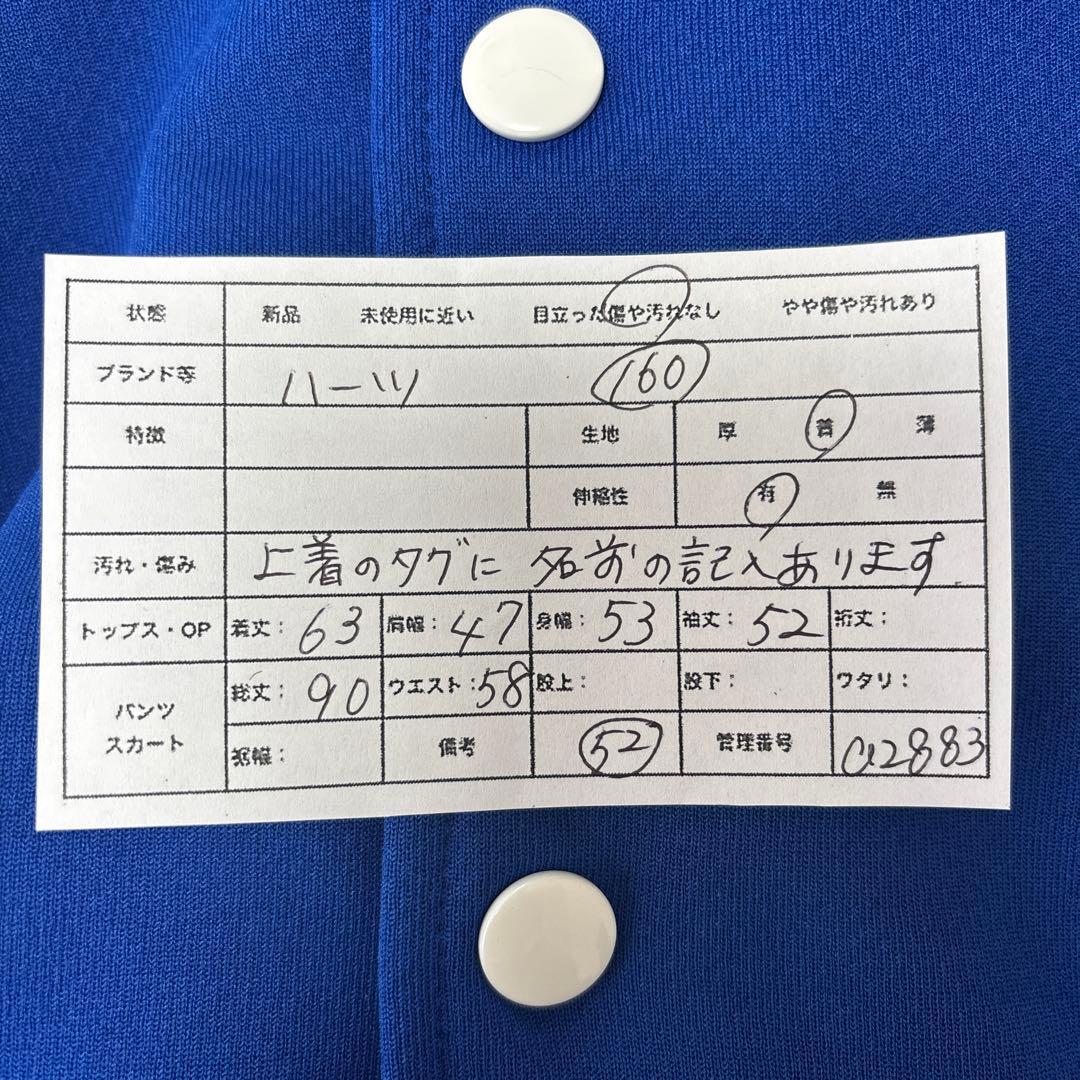 状態 新品 未使用に近い 目立った傷や汚れなし やや傷や汚れあり
ブランド等 ハーツ 160
特徴 生地 厚 普 薄
伸縮性 有 無
汚れ・傷み 上着のタグに名前の記入あります
トップス・OP 着丈:63 肩幅:47 身幅:53 袖丈:52 裄丈:
パンツ スカート 総丈:90 ウエスト:58 股上: 股下: ワタリ:
裾幅: 備考 52 管理番号 a2883